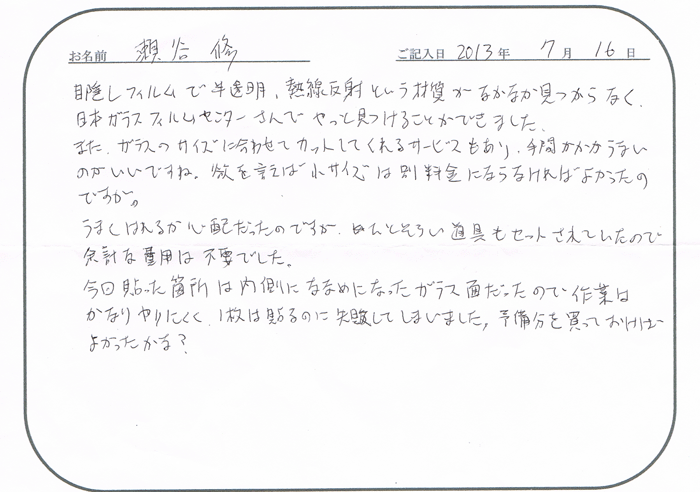 お名前 瀬谷 修 ご記入日 2013年 7月 16日
目隠しフィルムで半透明、熱線反射という材質がなかなか見つからなく、
日本ガラスフィルムセンターさんでやっと見つけることができました。
また、ガラスのサイズに合わせてカットしてくれるサービスもあり、手間がかからない
のがいいですね。欲を言えば小サイズは別料金にならなければよかったの
ですが。
うまくはれるか心配だったのですが、ほとんどそろい道具もセットされていたので
余計な費用は不要でした。
今回貼った箇所は内側にななめになったガラス面だったので作業は
かなりやりにくく、1枚は貼るのに失敗してしまいました。予備分を買っておけば
よかったかな?